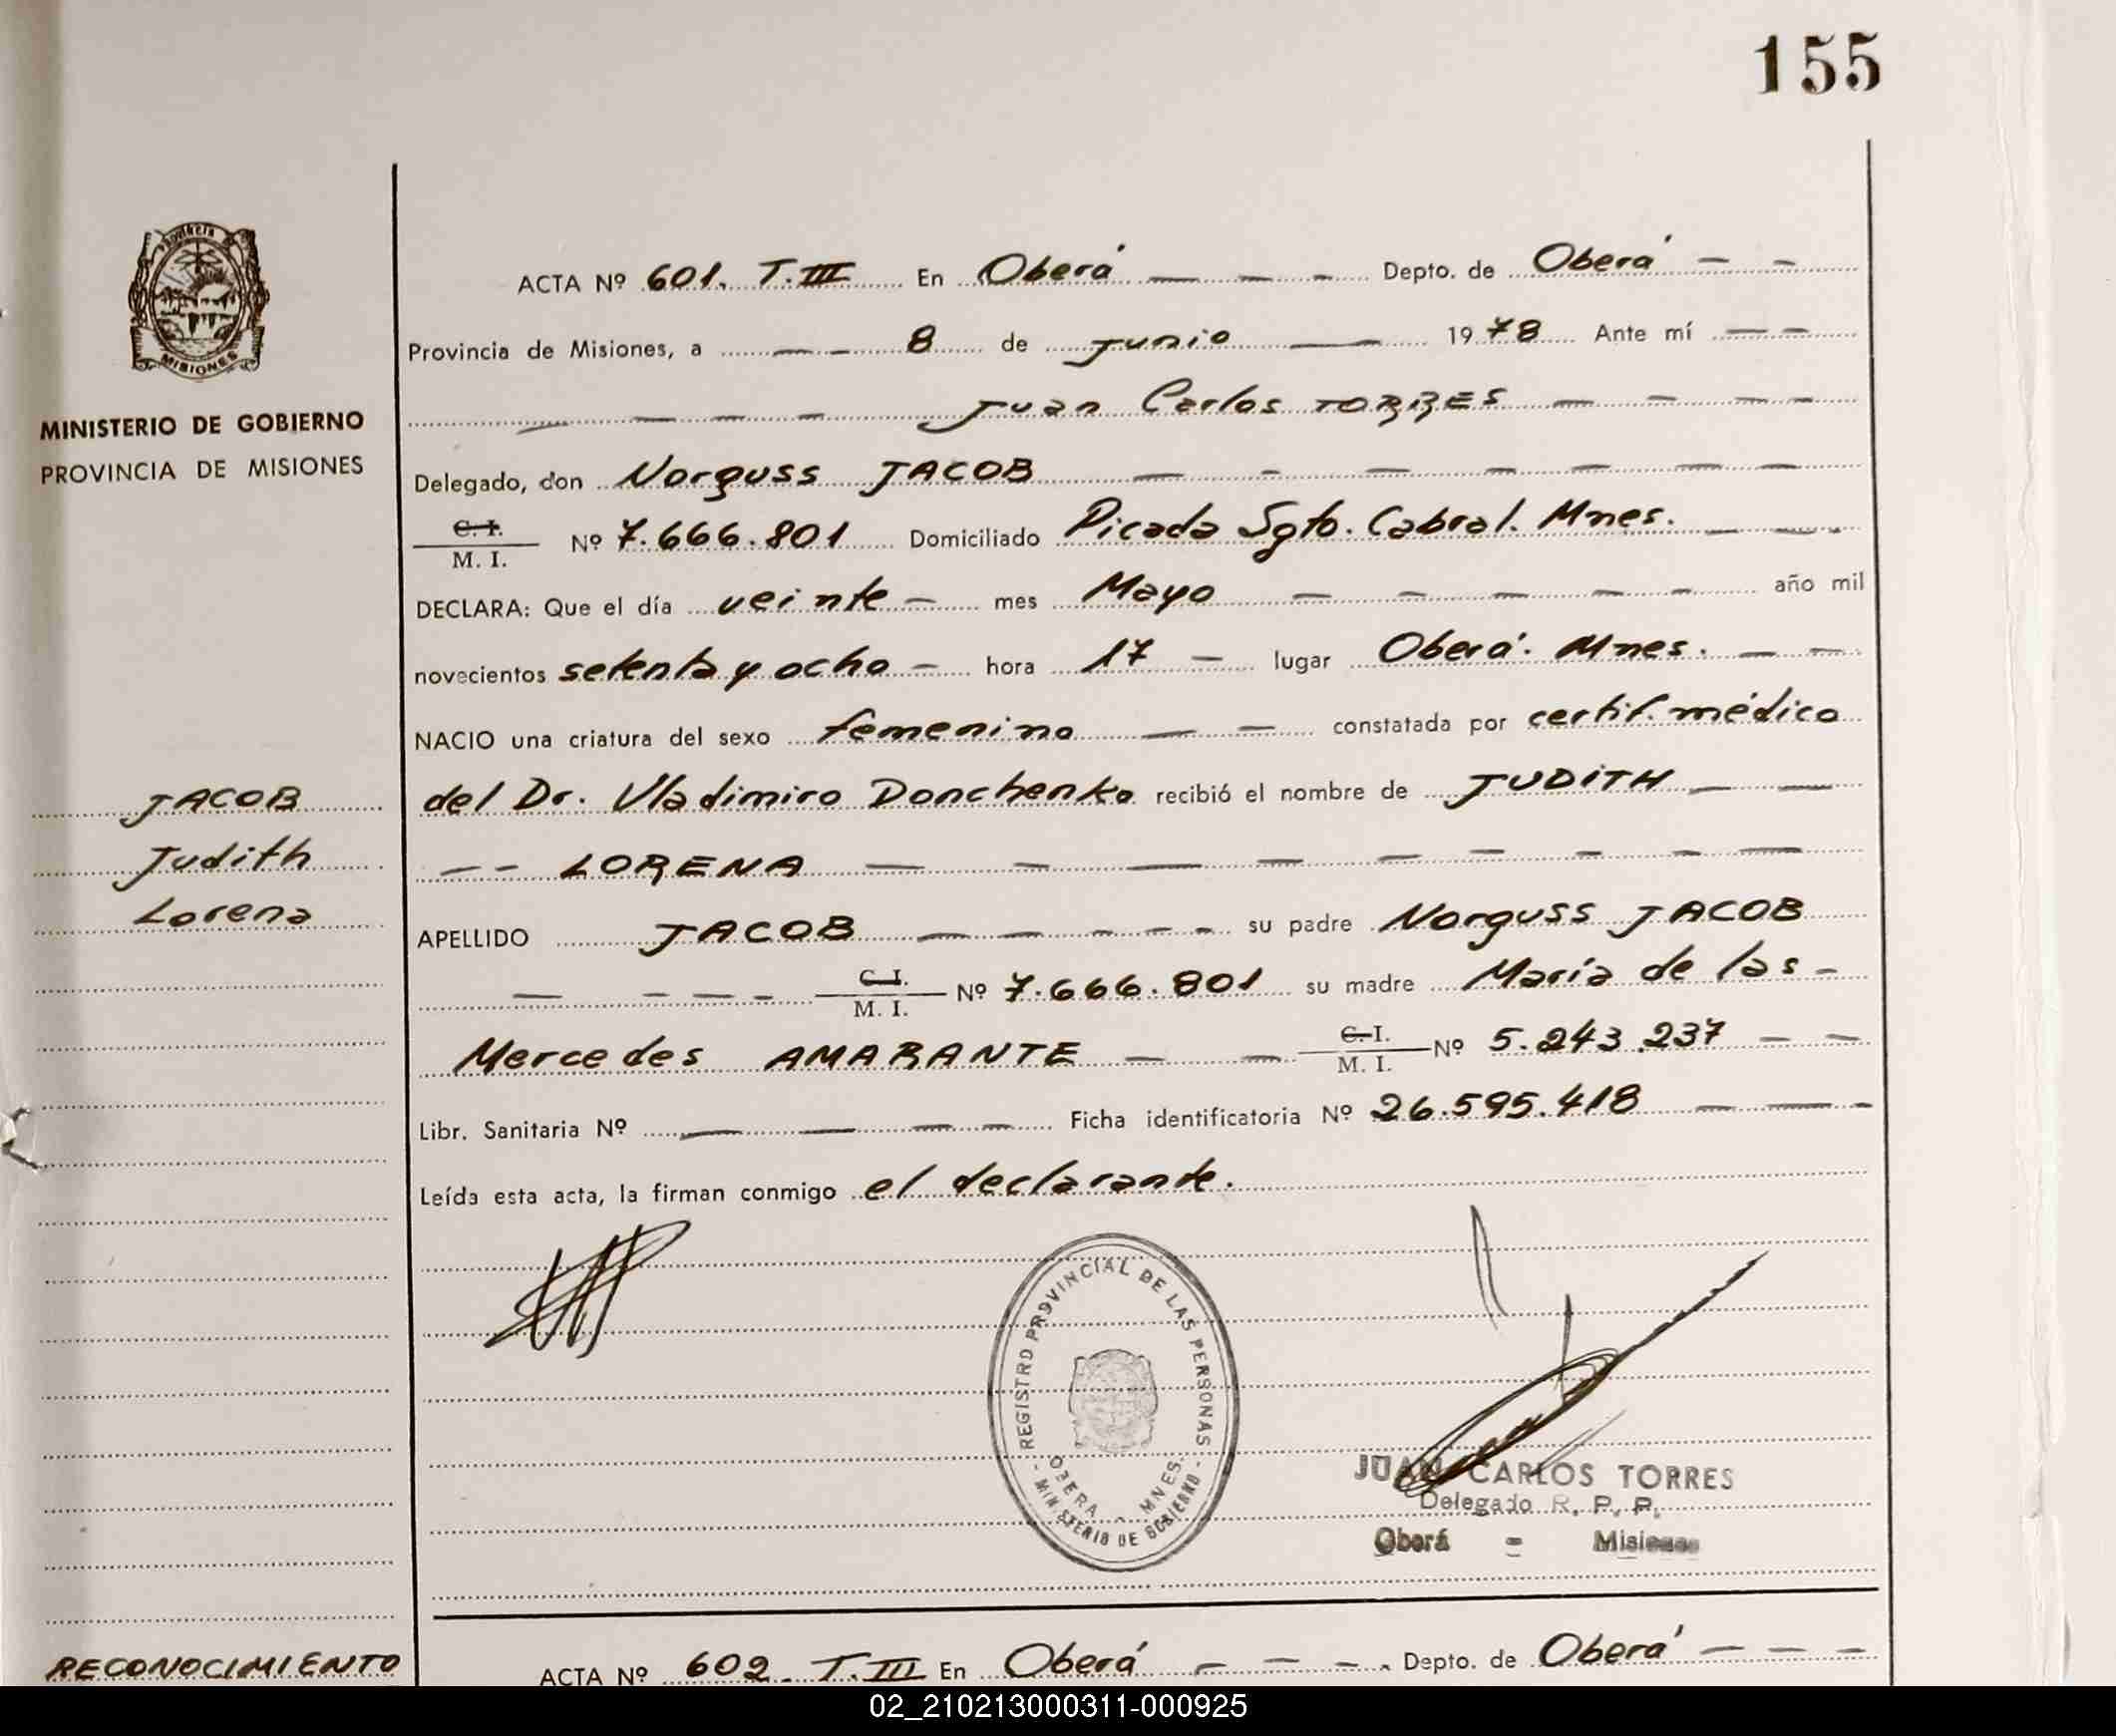 155
Provincia
MISIONES
MINISTERIO DE GOBIERNO
PROVINCIA DE MISIONES
JACOB
Judith
Lorena
ACTA Nº 601. T.III En Oberá — — — Depto. de Oberá — —
Provincia de Misiones, a — — 8 de Junio — — 1978 Ante mí — —
— — — Juan Carlos TORRES — — — —
Delegado, don Norguss JACOB — — — — — — —
C. I.
M. I. Nº 7.666.801 Domiciliado Picada Sgto. Cabral. Mnes. — — -
DECLARA: Que el día veinte — mes Mayo — — — — — año mil
novecientos setenta y ocho — hora 17 — lugar Oberá. Mnes. — —
NACIO una criatura del sexo femenino — — constatada por certif. médico
del Dr. Vladimiro Donchenko recibió el nombre de JUDITH — —
— - LORENA — — — — — — — — —
APELLIDO JACOB — — — — — su padre Norguss JACOB
— — — — C. I.
M. I. Nº 7.666.801 su madre María de las -
Mercedes AMARANTE — — C. I.
M. I. Nº 5.243.237 — —
Libr. Sanitaria Nº — — — — Ficha identificatoria Nº 26.595.418 — — -
Leída esta acta, la firman conmigo el declarante.
- REGISTRO PROVINCIAL DE LAS PERSONAS -
OBERA - MNES.
MINISTERIO DE GOBIERNO
JUAN CARLOS TORRES
Delegado R. P. P.
Oberá - Misiones
RECONOCIMIENTO
ACTA Nº 602 - T.III En Oberá — — — - Depto. de Oberá — — —
02_210213000311-000925